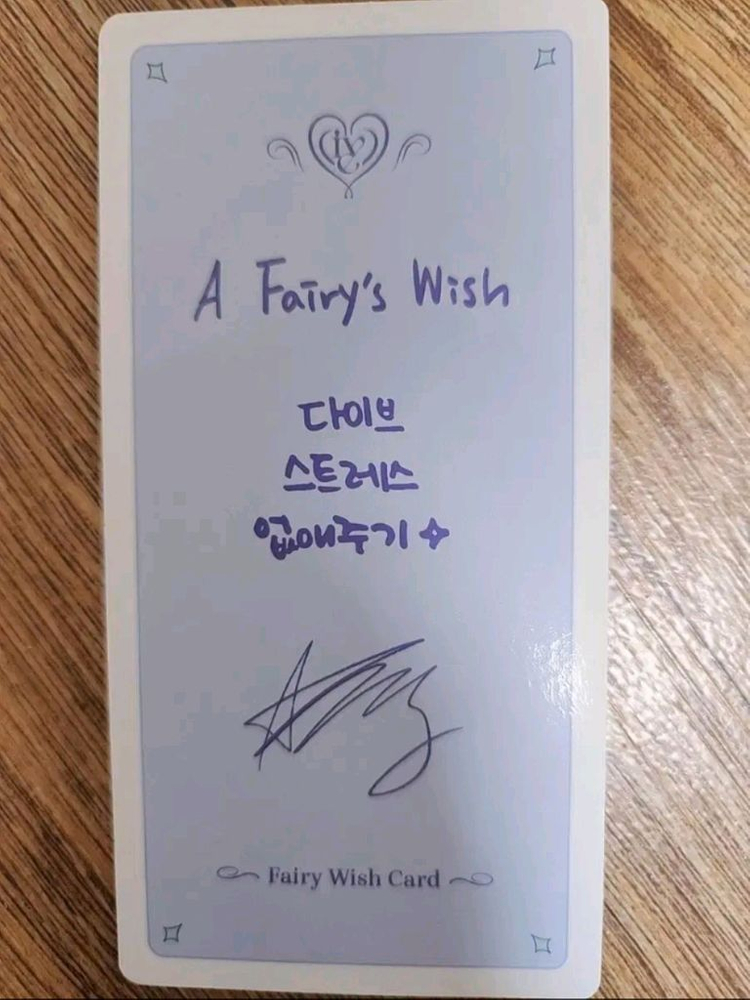 A Fairy's Wish
다이브
스트레스
없애주기
Fairy Wish Card